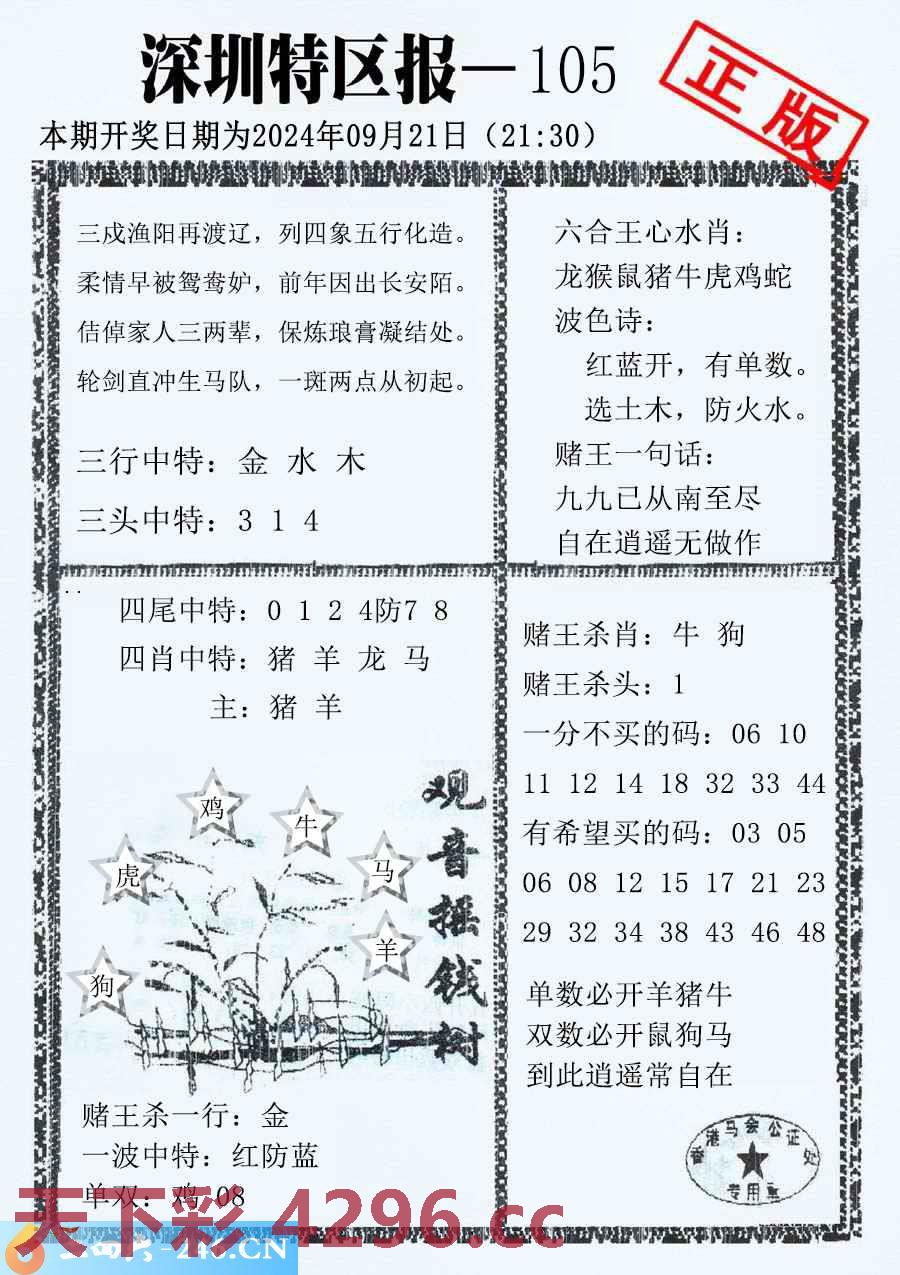 深圳特区报—105
正版
本期开奖日期为2024年09月21日（21:30）
三戍渔阳再渡辽，列四象五行化造。
柔情早被鸳鸯妒，前年因出长安陌。
佶倬家人三两辈，保炼琅膏凝结处。
轮剑直冲生马队，一斑两点从初起。
三行中特：金 水 木
三头中特：3 1 4
六合王心水肖：
龙猴鼠猪牛虎鸡蛇
波色诗：
红蓝开，有单数。
选土木，防火水。
赌王一句话：
九九已从南至尽
自在逍遥无做作
四尾中特：0 1 2 4防7 8
四肖中特：猪 羊 龙 马
主：猪 羊
鸡
牛
虎
马
羊
狗
观音摇钱树
赌王杀一行：金
一波中特：红防蓝
单双：鸡 08
赌王杀肖：牛 狗
赌王杀头：1
一分不买的码：06 10
11 12 14 18 32 33 44
有希望买的码：03 05
06 08 12 15 17 21 23
29 32 34 38 43 46 48
单数必开羊猪牛
双数必开鼠狗马
到此逍遥常自在
香港马会公证处
专用章
天下彩 4296.cc
-246.CN